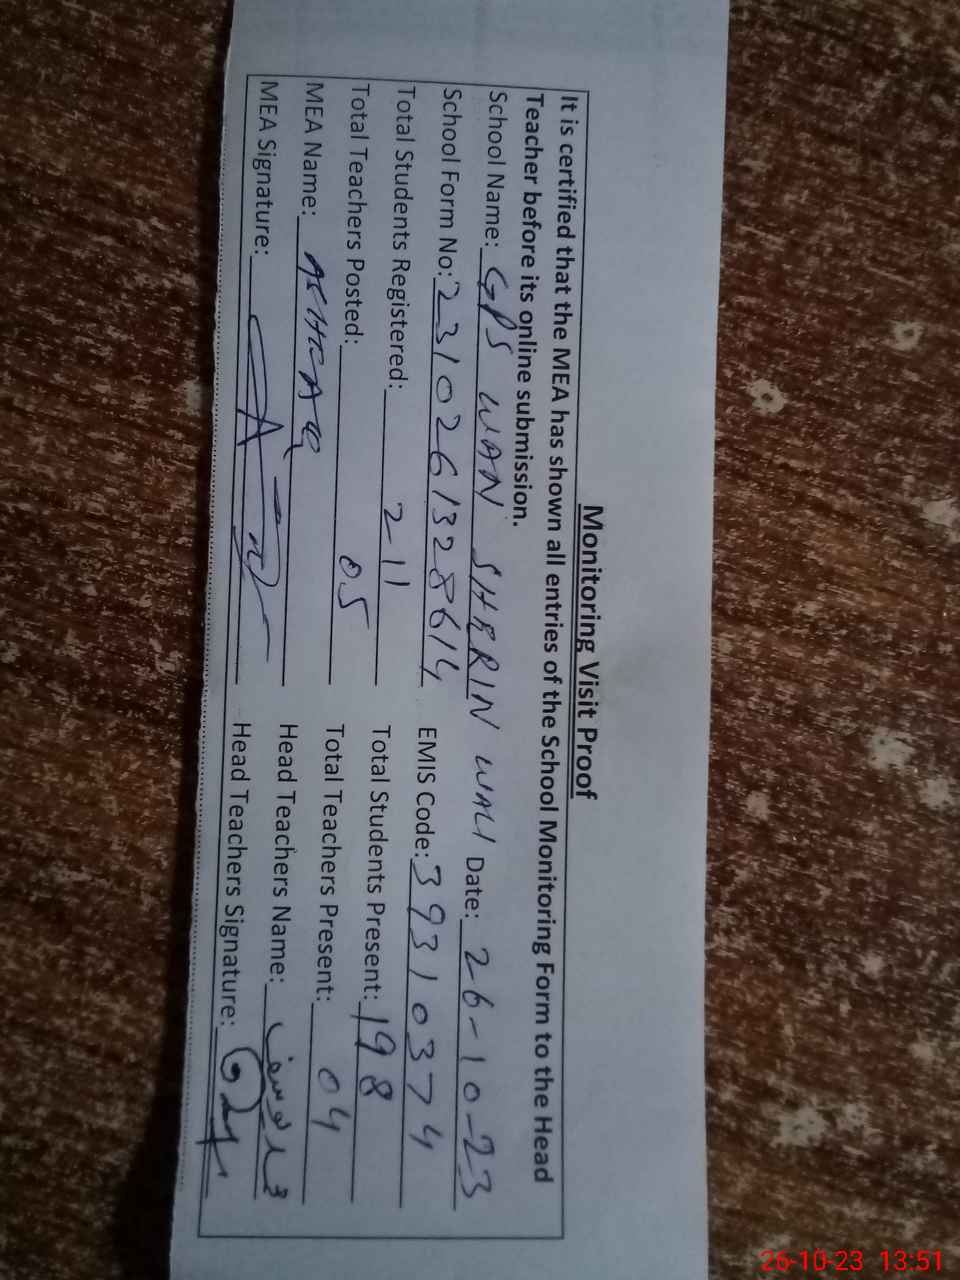 Monitoring Visit Proof
It is certified that the MEA has shown all entries of the School Monitoring Form to the Head
Teacher before its online submission.
School Name: GPS WAN SHERIN WALI Date: 26-10-23
School Form No: 2310261328614 EMIS Code: 39310374
Total Students Registered: 211 Total Students Present: 198
Total Teachers Posted: 05 Total Teachers Present: 04
MEA Name: ASHFAQ Head Teachers Name:
MEA Signature: Head Teachers Signature:
26-10-23 13:51